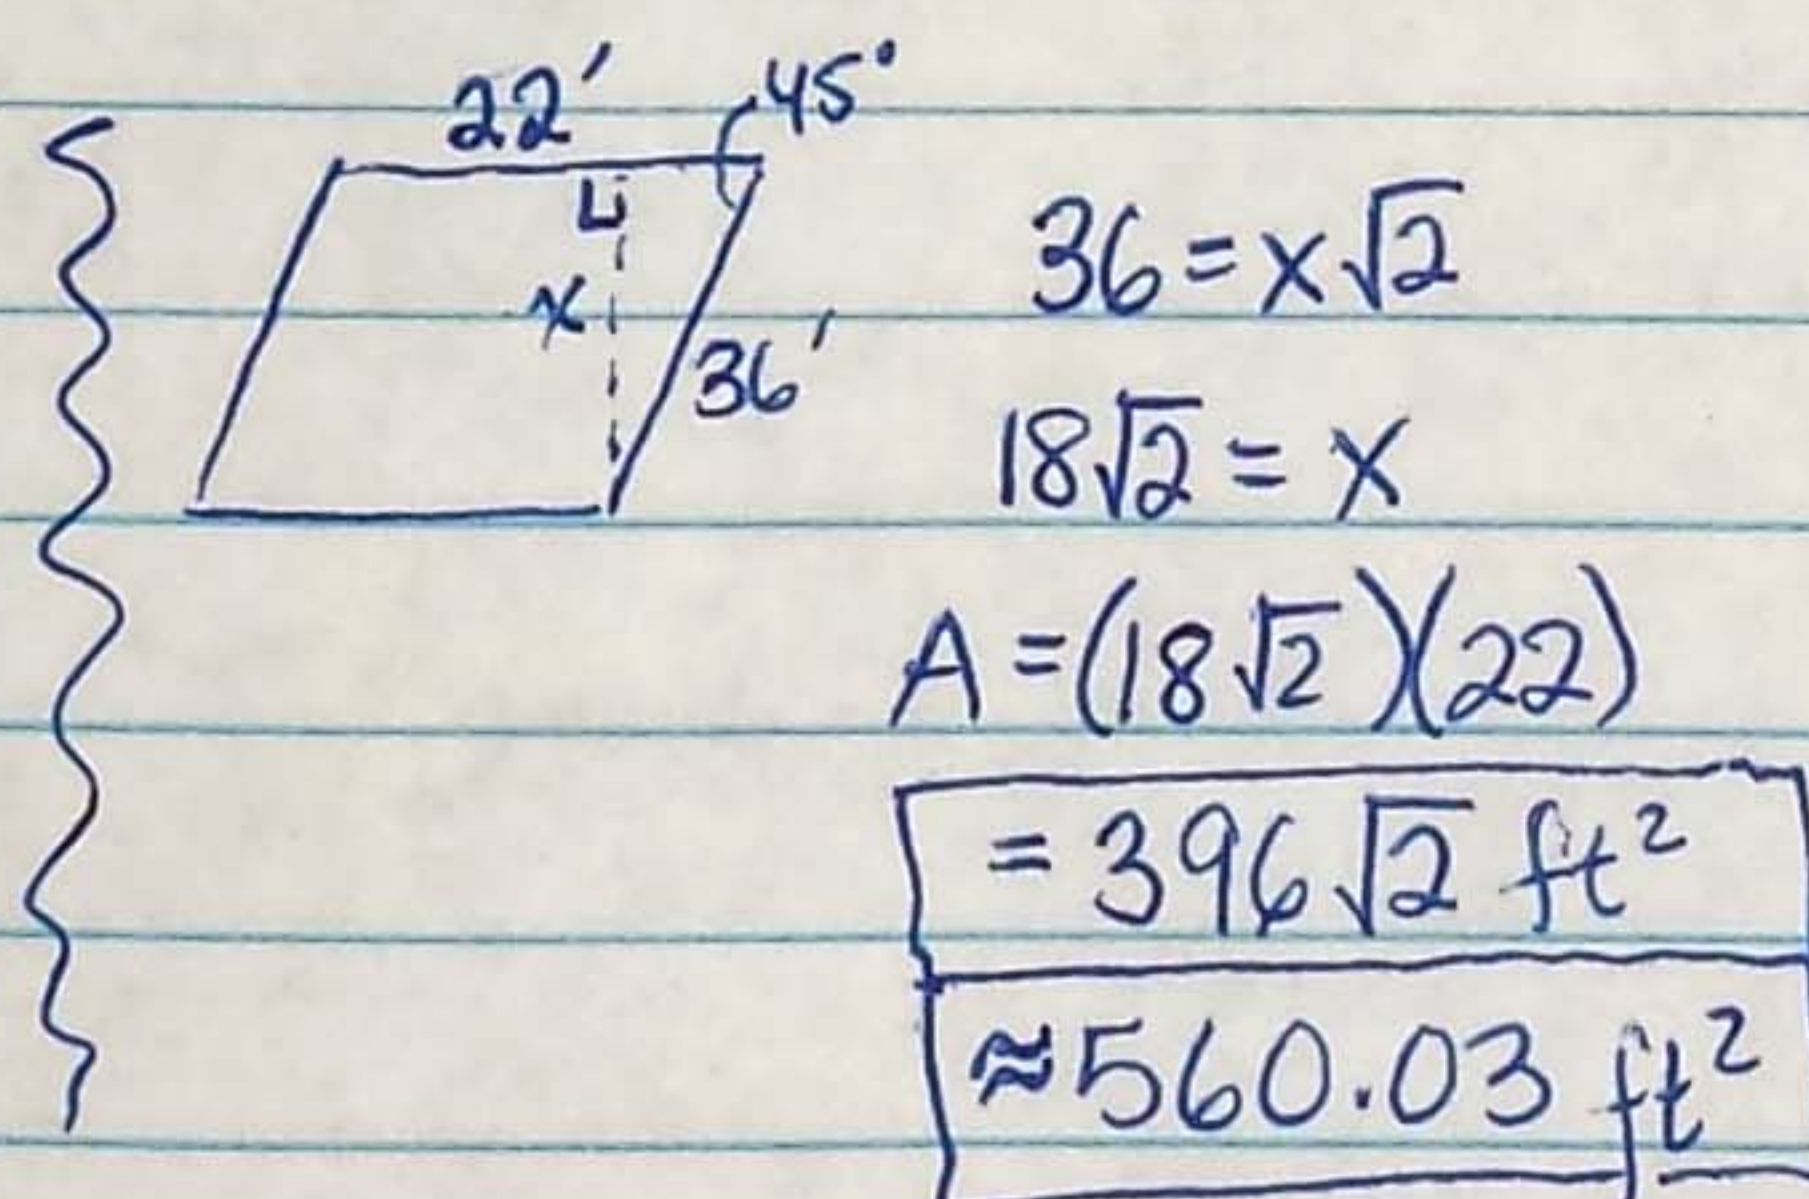 22'
45°
x
36'
36 = x√2
18√2 = x
A = (18√2)(22)
= 396√2 ft²
≈ 560.03 ft²